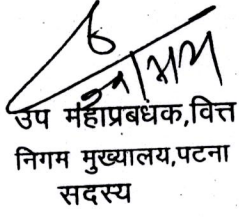 उप महाप्रबंधक,वित्त
निगम मुख्यालय,पटना
सदस्य